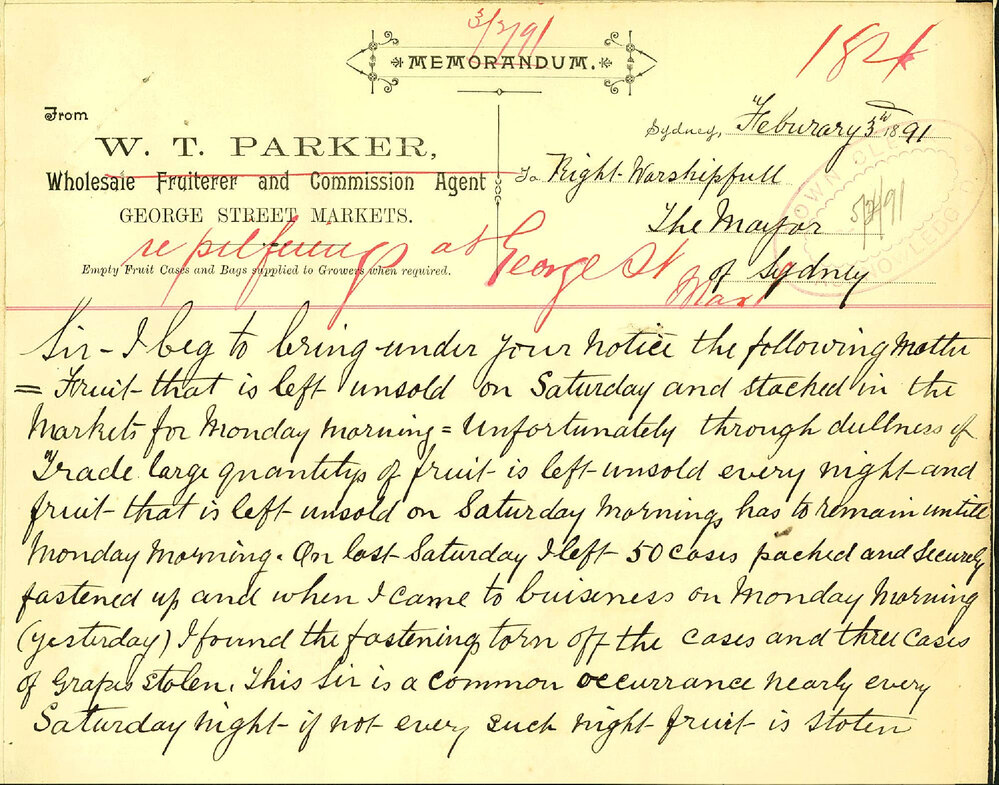 3/2/91
MEMORANDUM.
182
From
W. T. PARKER,
Wholesale Fruiterer and Commission Agent
GEORGE STREET MARKETS.
Empty Fruit Cases and Bags supplied to Growers when required.
Sydney, Feburary 3rd 1891
To Right Worshipfull
The Mayor
of Sydney
TOWN CLERK
5/2/91
re pilferings at George St Mar
Sir - I beg to bring under your notice the following Matter
= Fruit that is left unsold on Saturday and stacked in the
Markets for Monday morning = Unfortunately through dullness of
Trade large quantitys of fruit is left unsold every night and
fruit that is left unsold on Saturday Mornings has to remain untill
Monday Morning. On last Saturday I left 50 cases packed and securely
fastened up and when I came to buisness on Monday Morning
(yesterday) I found the fastening torn off the cases and three cases
of Grapes stolen. This Sir is a common occurrance nearly every
Saturday night if not every such night fruit is stolen